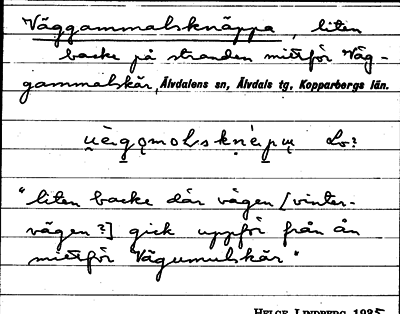 Väggammalsknäppa, liten
backe på stranden mittför Väg-
gammalskär, Älvdalens sn, Älvdals tg, Kopparbergs län.
"liten backe där vägen [vinter-
vägen?] gick uppför från ån
mittför Vägumulskär"
HELGE LINDBERG 1935